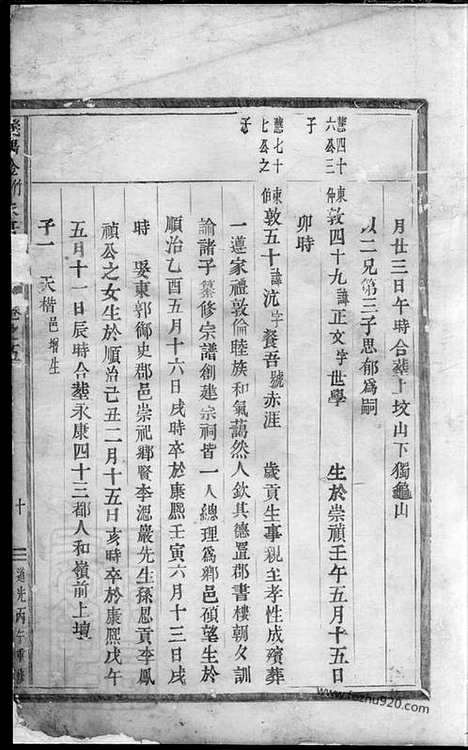 月廿三日午時合塟上坟山下獨龜山
以二兄第三子思郁爲嗣
慧四十六公三子
東仲
敦四十九諱正文字世學　生於崇禎壬午五月十五日
卯時
慧七十七公之子
東伯
敦五十諱沆字餐吾號赤涯　歲貢生事親至孝性成殯葬
一遵家禮敦倫睦族和氣藹然人欽其德置郡書樓朝夕訓
諭諸子纂修宗譜創建宗祠皆一人總理爲鄉邑碩望生於
順治乙酉五月十六日戌時卒於康熙壬寅六月十三日戌
時　娶東郭御史郡邑崇祀鄉賢李溫巖先生孫恩貢李鳳
禎公之女生於順治己丑二月十五日亥時卒於康熙戊午
五月十一日辰時合塟永康四十三都人和嶺前上壇
子一　天楷邑增生
卷之五
十
道光丙午重修
www.fozhu920.com